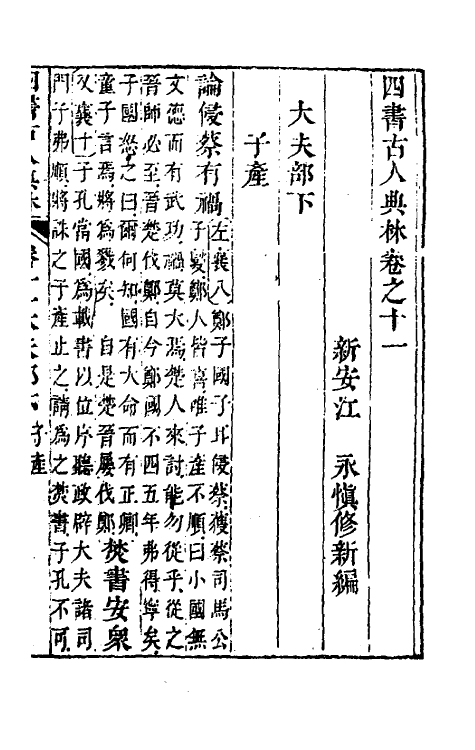 四書古人典林卷之十一
新安江　永慎修新編
大夫部下
子產
論侵蔡有禍左襄八鄭子國子耳侵蔡獲蔡司馬公
子燮鄭人皆喜唯子產不順曰小國無
文德而有武功禍莫大焉楚人來討能勿從乎從之
晉師必至晉楚伐鄭自今鄭國不四五年弗得寧矣
子國怒之曰爾何知國有大命而有正卿
童子言焉將為戮矣　自是楚晉屢伐鄭焚書安衆
又襄十子孔當國為載書以位序聽政辟大夫諸司
門子弗順將誅之子產止之請為之焚書子孔不可